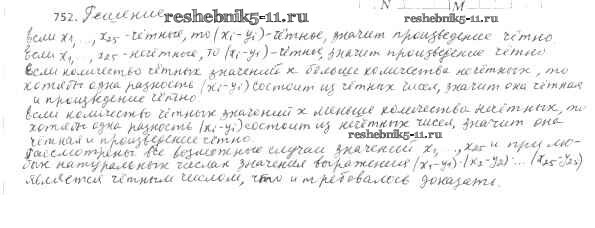 N M
752. Решение reshebnik5-11.ru
Если x1, ..., x25 - чётные, то (xi-yi) - чётные, значит произведение чётно
Если x1, ..., x25 - нечётные, то (xi-yi) - чётные, значит произведение чётно
Если количество чётных значений x больше количества нечётных, то
хотя бы одна разность (xi-yi) состоит из чётных чисел, значит она чётная
и произведение чётно.
Если количество чётных значений x меньше количества нечётных, то
хотя бы одна разность (xi-yi) состоит из нечётных чисел, значит она
чётная и произведение чётно. reshebnik5-11.ru
Рассмотрены все возможные случаи значений x1, ..., x25 и при лю-
бых натуральных числах значения выражения (x1-y1)·(x2-y2)·...·(x25-y25)
является чётным числом, что и требовалось доказать.
reshebnik5-11.ru